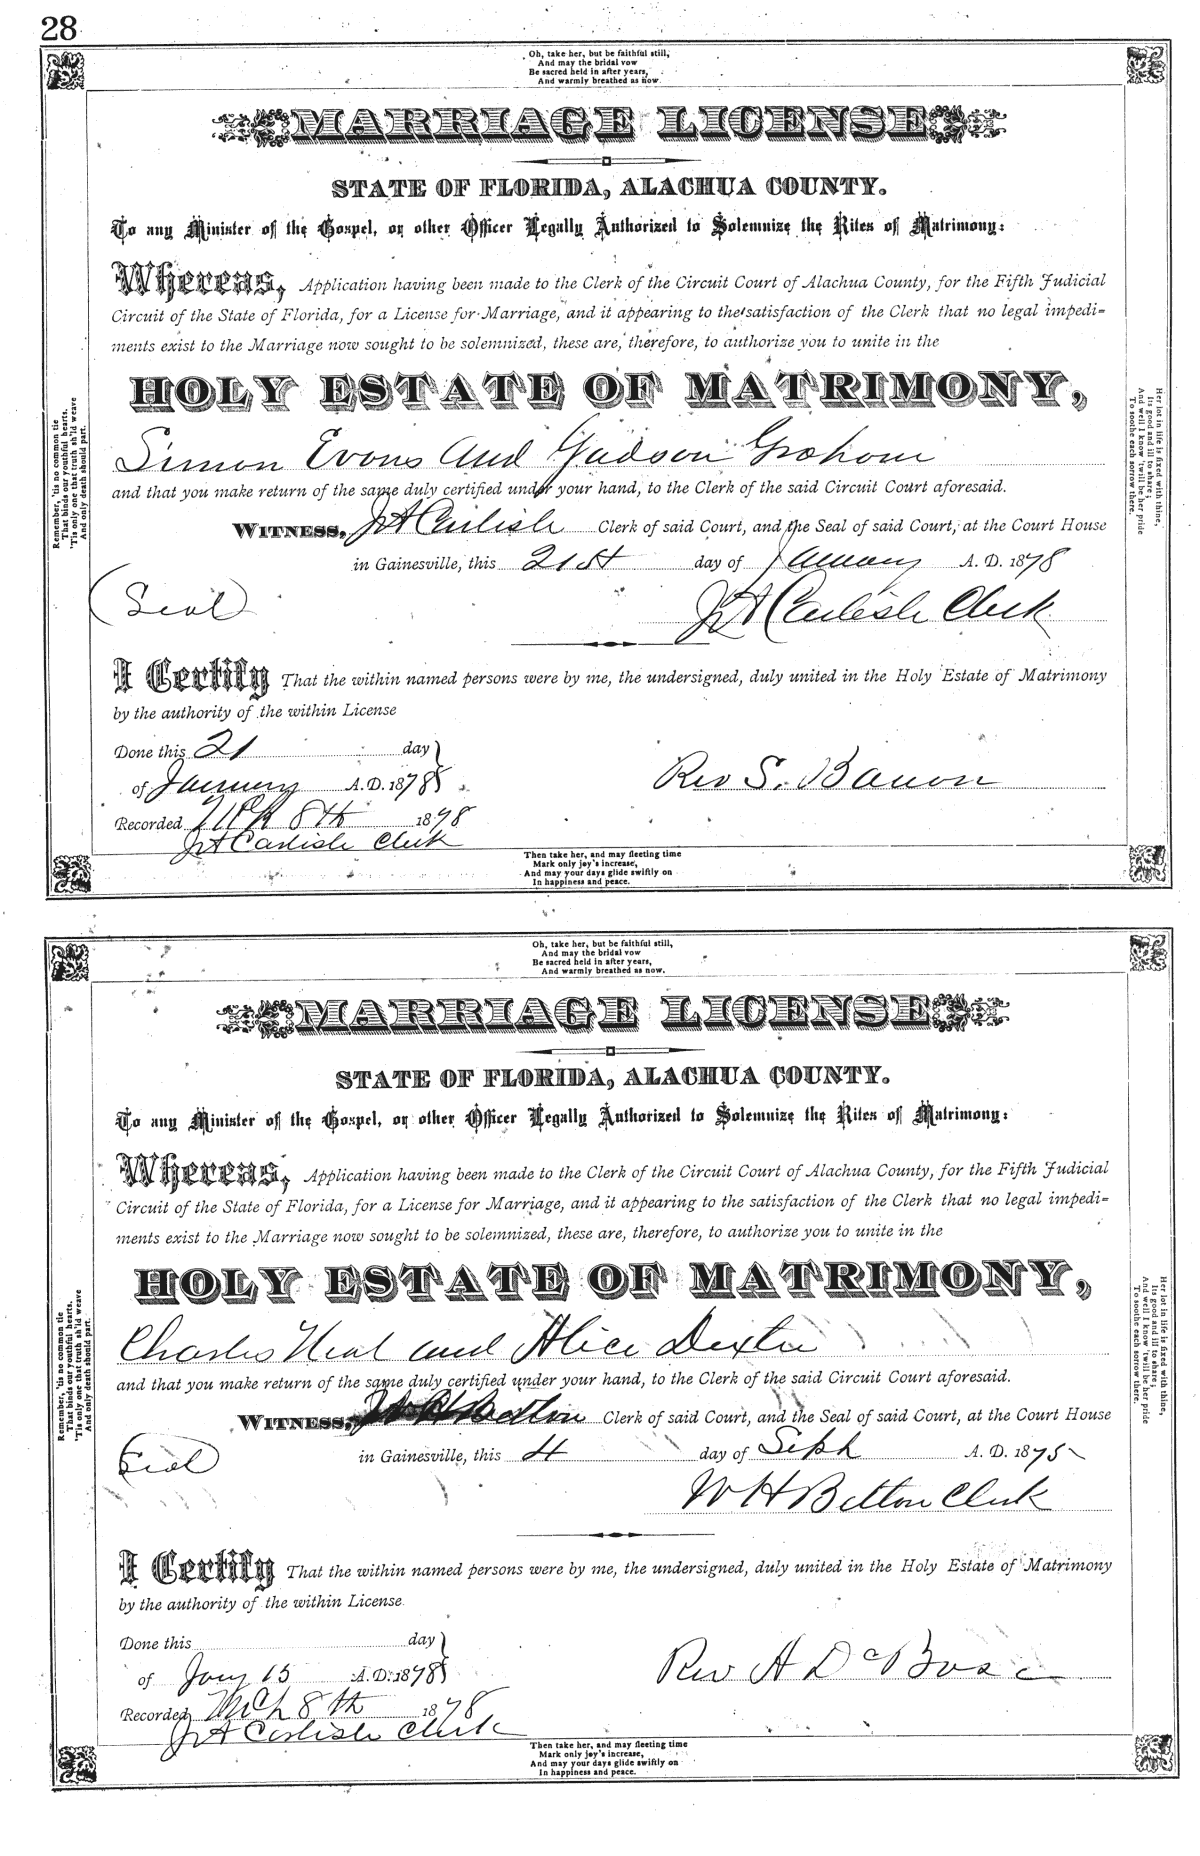 28
Oh, take her, but be faithful still,
And may the bridal vow
Be sacred held in after years,
And warmly breathed as now.
MARRIAGE LICENSE
STATE OF FLORIDA, ALACHUA COUNTY.
To any Minister of the Gospel, or other Officer Legally Authorized to Solemnize the Rites of Matrimony:
Whereas, Application having been made to the Clerk of the Circuit Court of Alachua County, for the Fifth Judicial
Circuit of the State of Florida, for a License for Marriage, and it appearing to the satisfaction of the Clerk that no legal impedi-
ments exist to the Marriage now sought to be solemnized, these are, therefore, to authorize you to unite in the
HOLY ESTATE OF MATRIMONY,
Simon Evans and Judson Graham
and that you make return of the same duly certified under your hand, to the Clerk of the said Circuit Court aforesaid.
WITNESS, J A Carlisle Clerk of said Court, and the Seal of said Court, at the Court House
in Gainesville, this 21st day of January A. D. 1878
(Seal)
J A Carlisle Clerk
I Certify That the within named persons were by me, the undersigned, duly united in the Holy Estate of Matrimony
by the authority of the within License
Done this 21 day
of January A. D. 1878
Rev S.
Recorded Mch 8th 1878
J A Carlisle Clerk
Then take her, and may fleeting time
Mark only joy's increase,
And may your days glide swiftly on
In happiness and peace.
Remember, 'tis no common tie
That binds our youthful hearts,
'Tis only one that truth sh'ld weave
And only death should part.
Her lot in life is fixed with thine,
Its good and ill to share;
And well I know 'twill be her pride
To soothe each sorrow there.
Oh, take her, but be faithful still,
And may the bridal vow
Be sacred held in after years,
And warmly breathed as now.
MARRIAGE LICENSE
STATE OF FLORIDA, ALACHUA COUNTY.
To any Minister of the Gospel, or other Officer Legally Authorized to Solemnize the Rites of Matrimony:
Whereas, Application having been made to the Clerk of the Circuit Court of Alachua County, for the Fifth Judicial
Circuit of the State of Florida, for a License for Marriage, and it appearing to the satisfaction of the Clerk that no legal impedi-
ments exist to the Marriage now sought to be solemnized, these are, therefore, to authorize you to unite in the
HOLY ESTATE OF MATRIMONY,
Charles Neal and Alice Dexter
and that you make return of the same duly certified under your hand, to the Clerk of the said Circuit Court aforesaid.
WITNESS, W H Belton Clerk of said Court, and the Seal of said Court, at the Court House
in Gainesville, this 4 day of Sept A. D. 1875
(Seal)
W H Belton Clerk
I Certify That the within named persons were by me, the undersigned, duly united in the Holy Estate of Matrimony
by the authority of the within License
Done this day
of Jany 15 A. D. 1878
Rev A
Recorded Mch 8th 1878
J A Carlisle Clerk
Then take her, and may fleeting time
Mark only joy's increase,
And may your days glide swiftly on
In happiness and peace.
Remember, 'tis no common tie
That binds our youthful hearts,
'Tis only one that truth sh'ld weave
And only death should part.
Her lot in life is fixed with thine,
Its good and ill to share;
And well I know 'twill be her pride
To soothe each sorrow there.